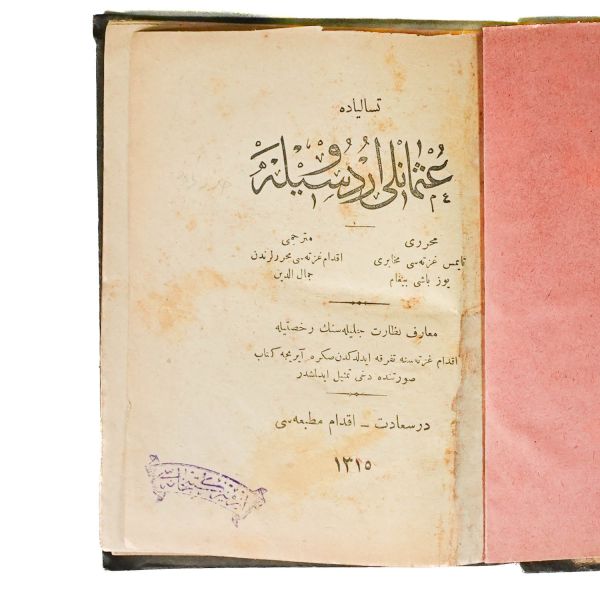 تسالیاده
عثمانلی اردوسیله
محرری
تایمس غزته‌سی مخابری
یوز باشی بیغام
مترجمی
اقدام غزته‌سی محررلرندن
جمال الدین
معارف نظارت جلیله‌سنك رخصتیله
اقدام غزته‌سنه تفرقه ایدلدكدن صكره آیریجه كتاب
صورتنده دخی تمثیل ایدلشدر
درسعادت ـ اقدام مطبعه‌سی
١٣١٥